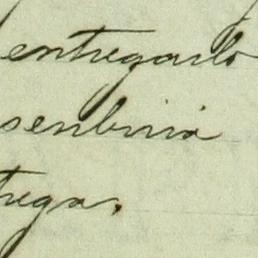 entregarlo
senbiria
trega.